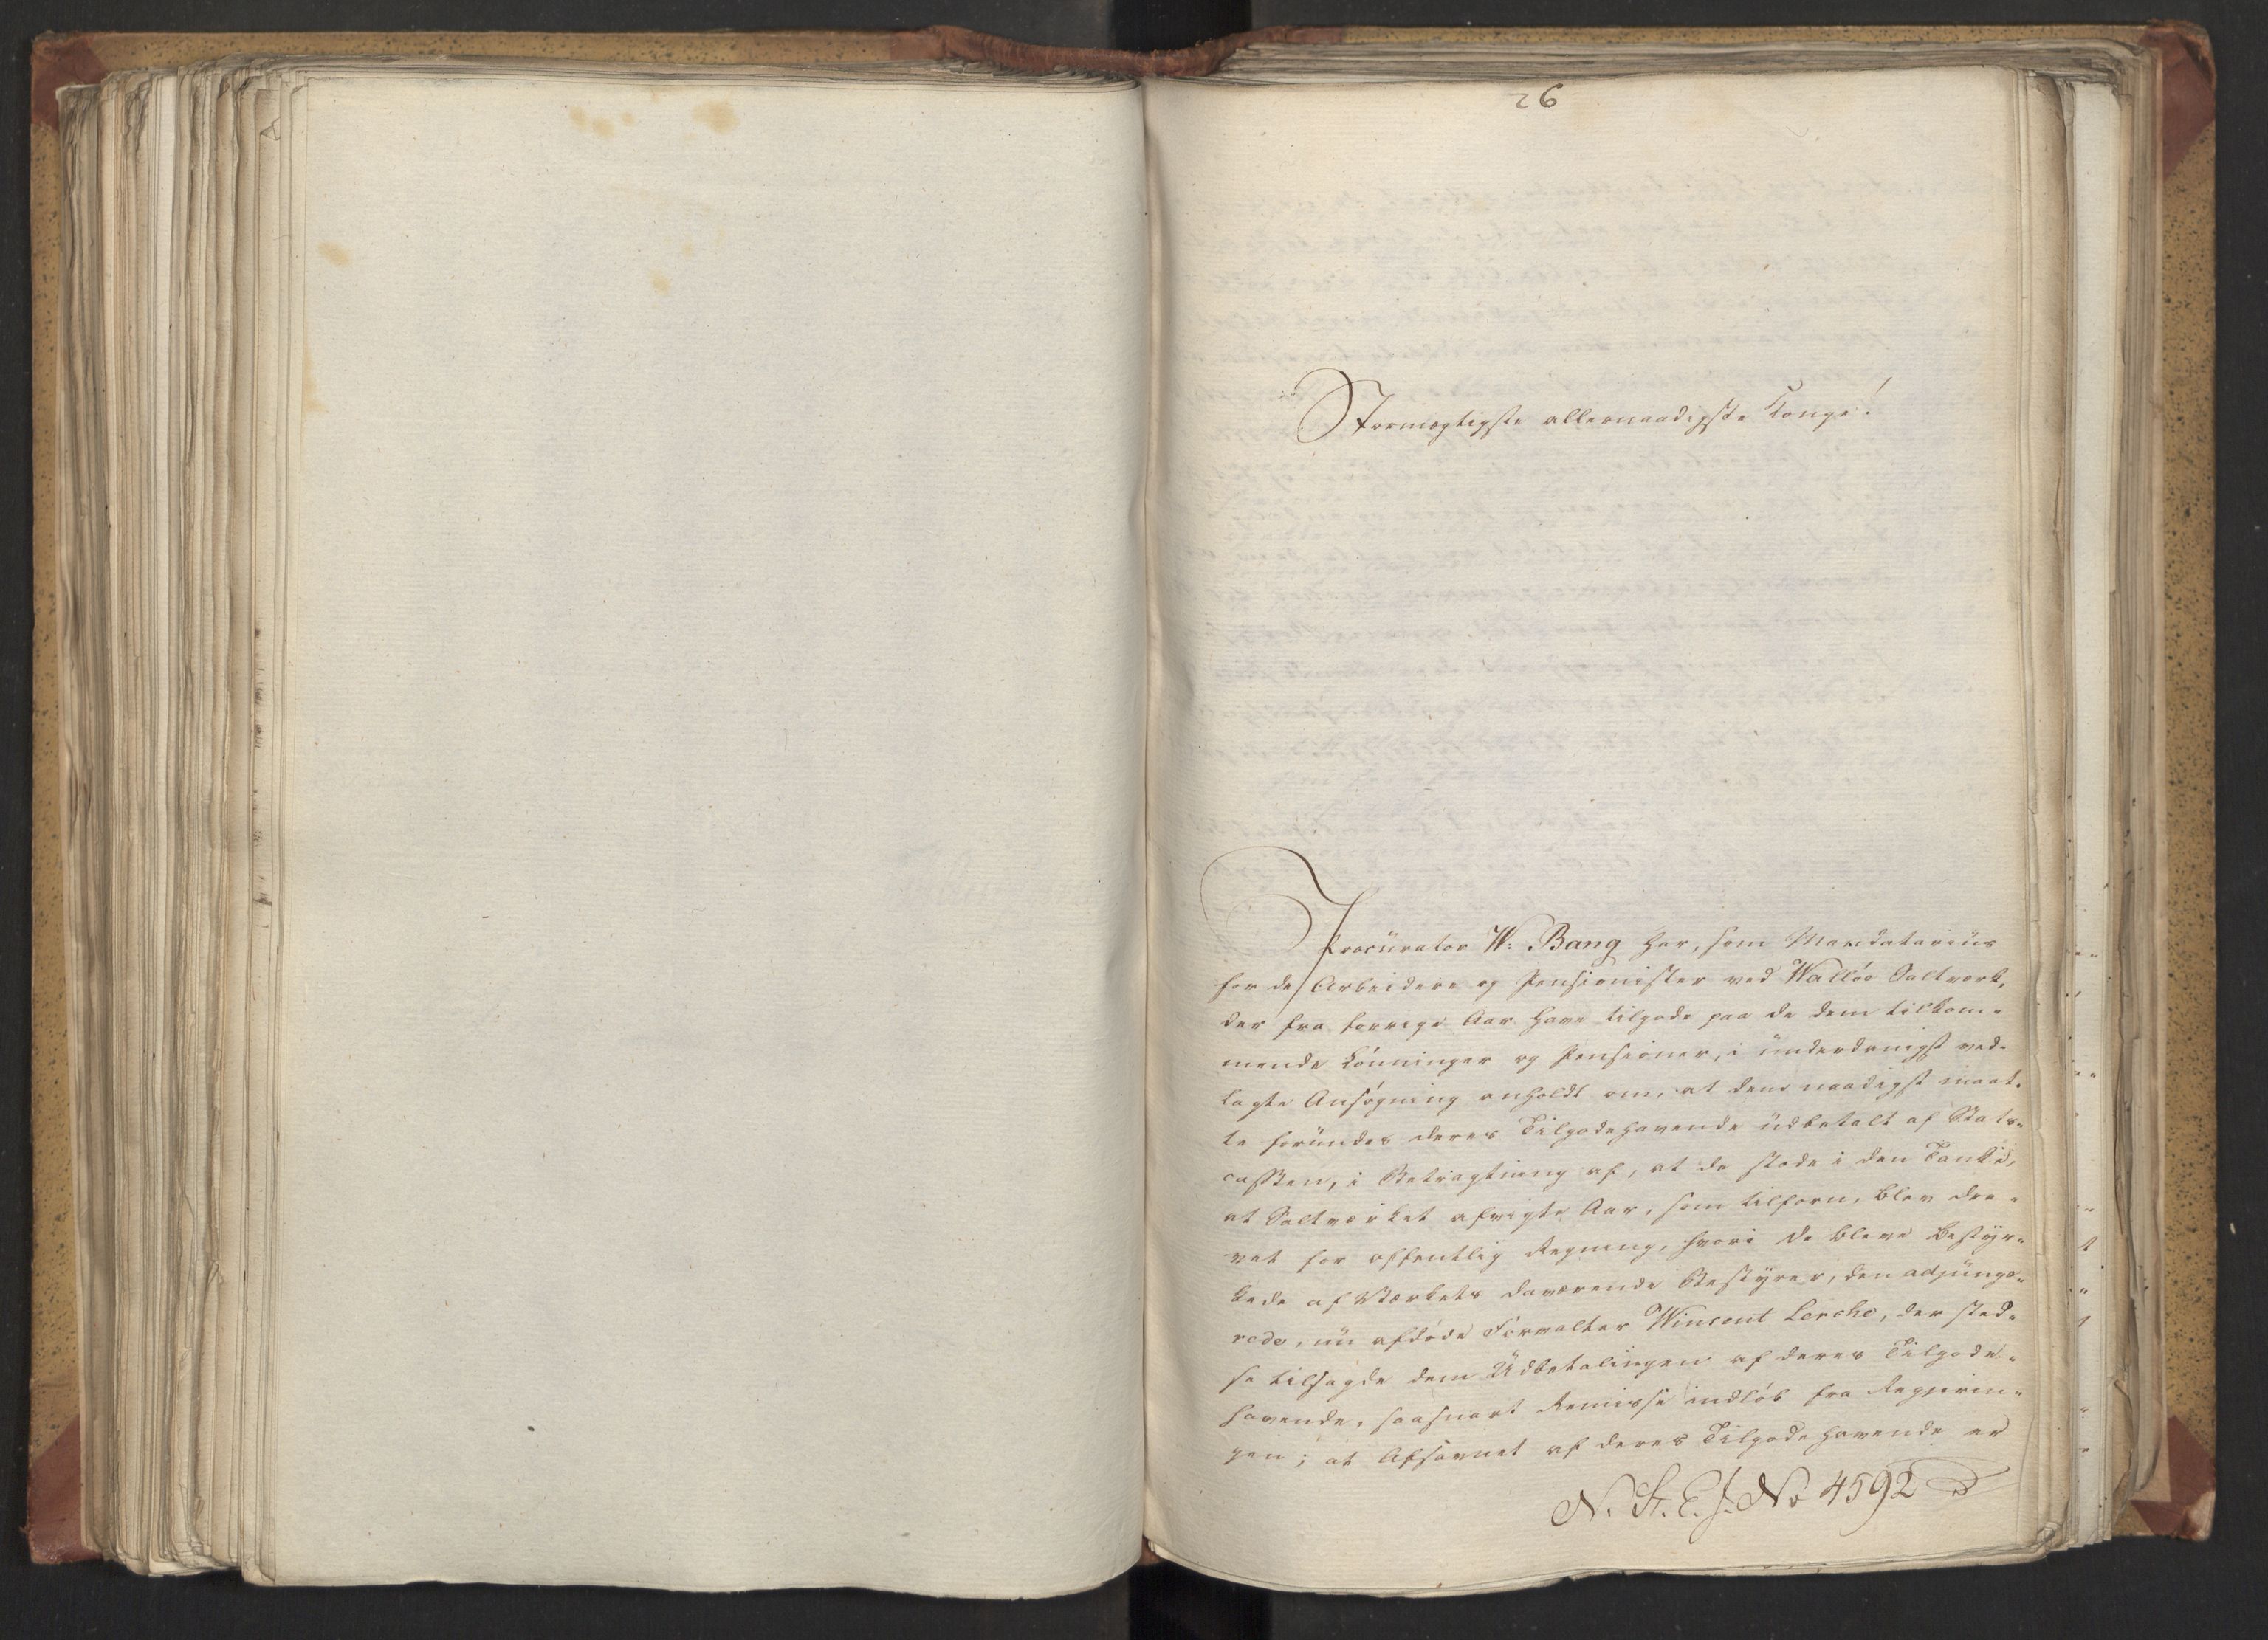 26
Stormægtigste allernaadigste Konge!
Procurator W: Bang har, som Mandatarius
for de Arbeidere og Pensionister ved Wallöe Saltværk,
der fra forrige Aar have tilgode paa de dem tilkom-
mende Lönninger og Pensioner, i underdanigst ved-
lagte Ansögning anholdt om, at dem naadigst maat-
te forundes deres Tilgodehavende udbetalt af Stats-
cassen, i Betragtning af, at de stode i den Tanke,
at Saltværket afvigte Aar, som tilforn, blev dre-
vet for offentlig Regning, hvori de bleve bestyr-
kede af Værkets daværende Bestyrer, den adjunge-
rede, nu afdöde Forvalter Wincent Lerche, der sted-
se tilsagde dem Udbetalingen af deres Tilgode-
havende, saasnart Remisse indlöb fra Regjerin-
gen; at Afsavnet af deres Tilgodehavende er
N. St. E. J. No 4592